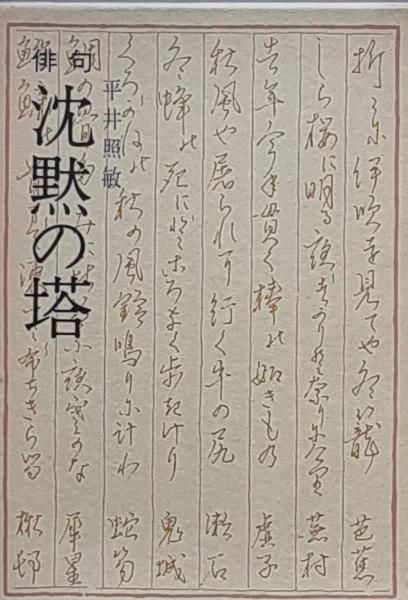 俳句
沈黙の塔
平井照敏
折々に伊吹を見てや冬籠 芭蕉
しら梅に明る夜ばかりとなりにけり 蕪村
去年今年貫く棒の如きもの 虚子
秋風や屠られに行く牛の尻 漱石
冬蜂の死にどころなく歩きけり 鬼城
くろがねの秋の風鈴鳴りにけり 蛇笏
鯛の骨 夜寒かな 犀星
鮟鱇の ぶちきらる 楸邨